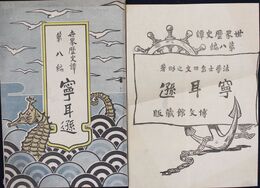 世界歴史譚
第八編
寧耳遜
世界歴史譚
第八編
法學士島田文之助著
寧耳遜
博文館藏版